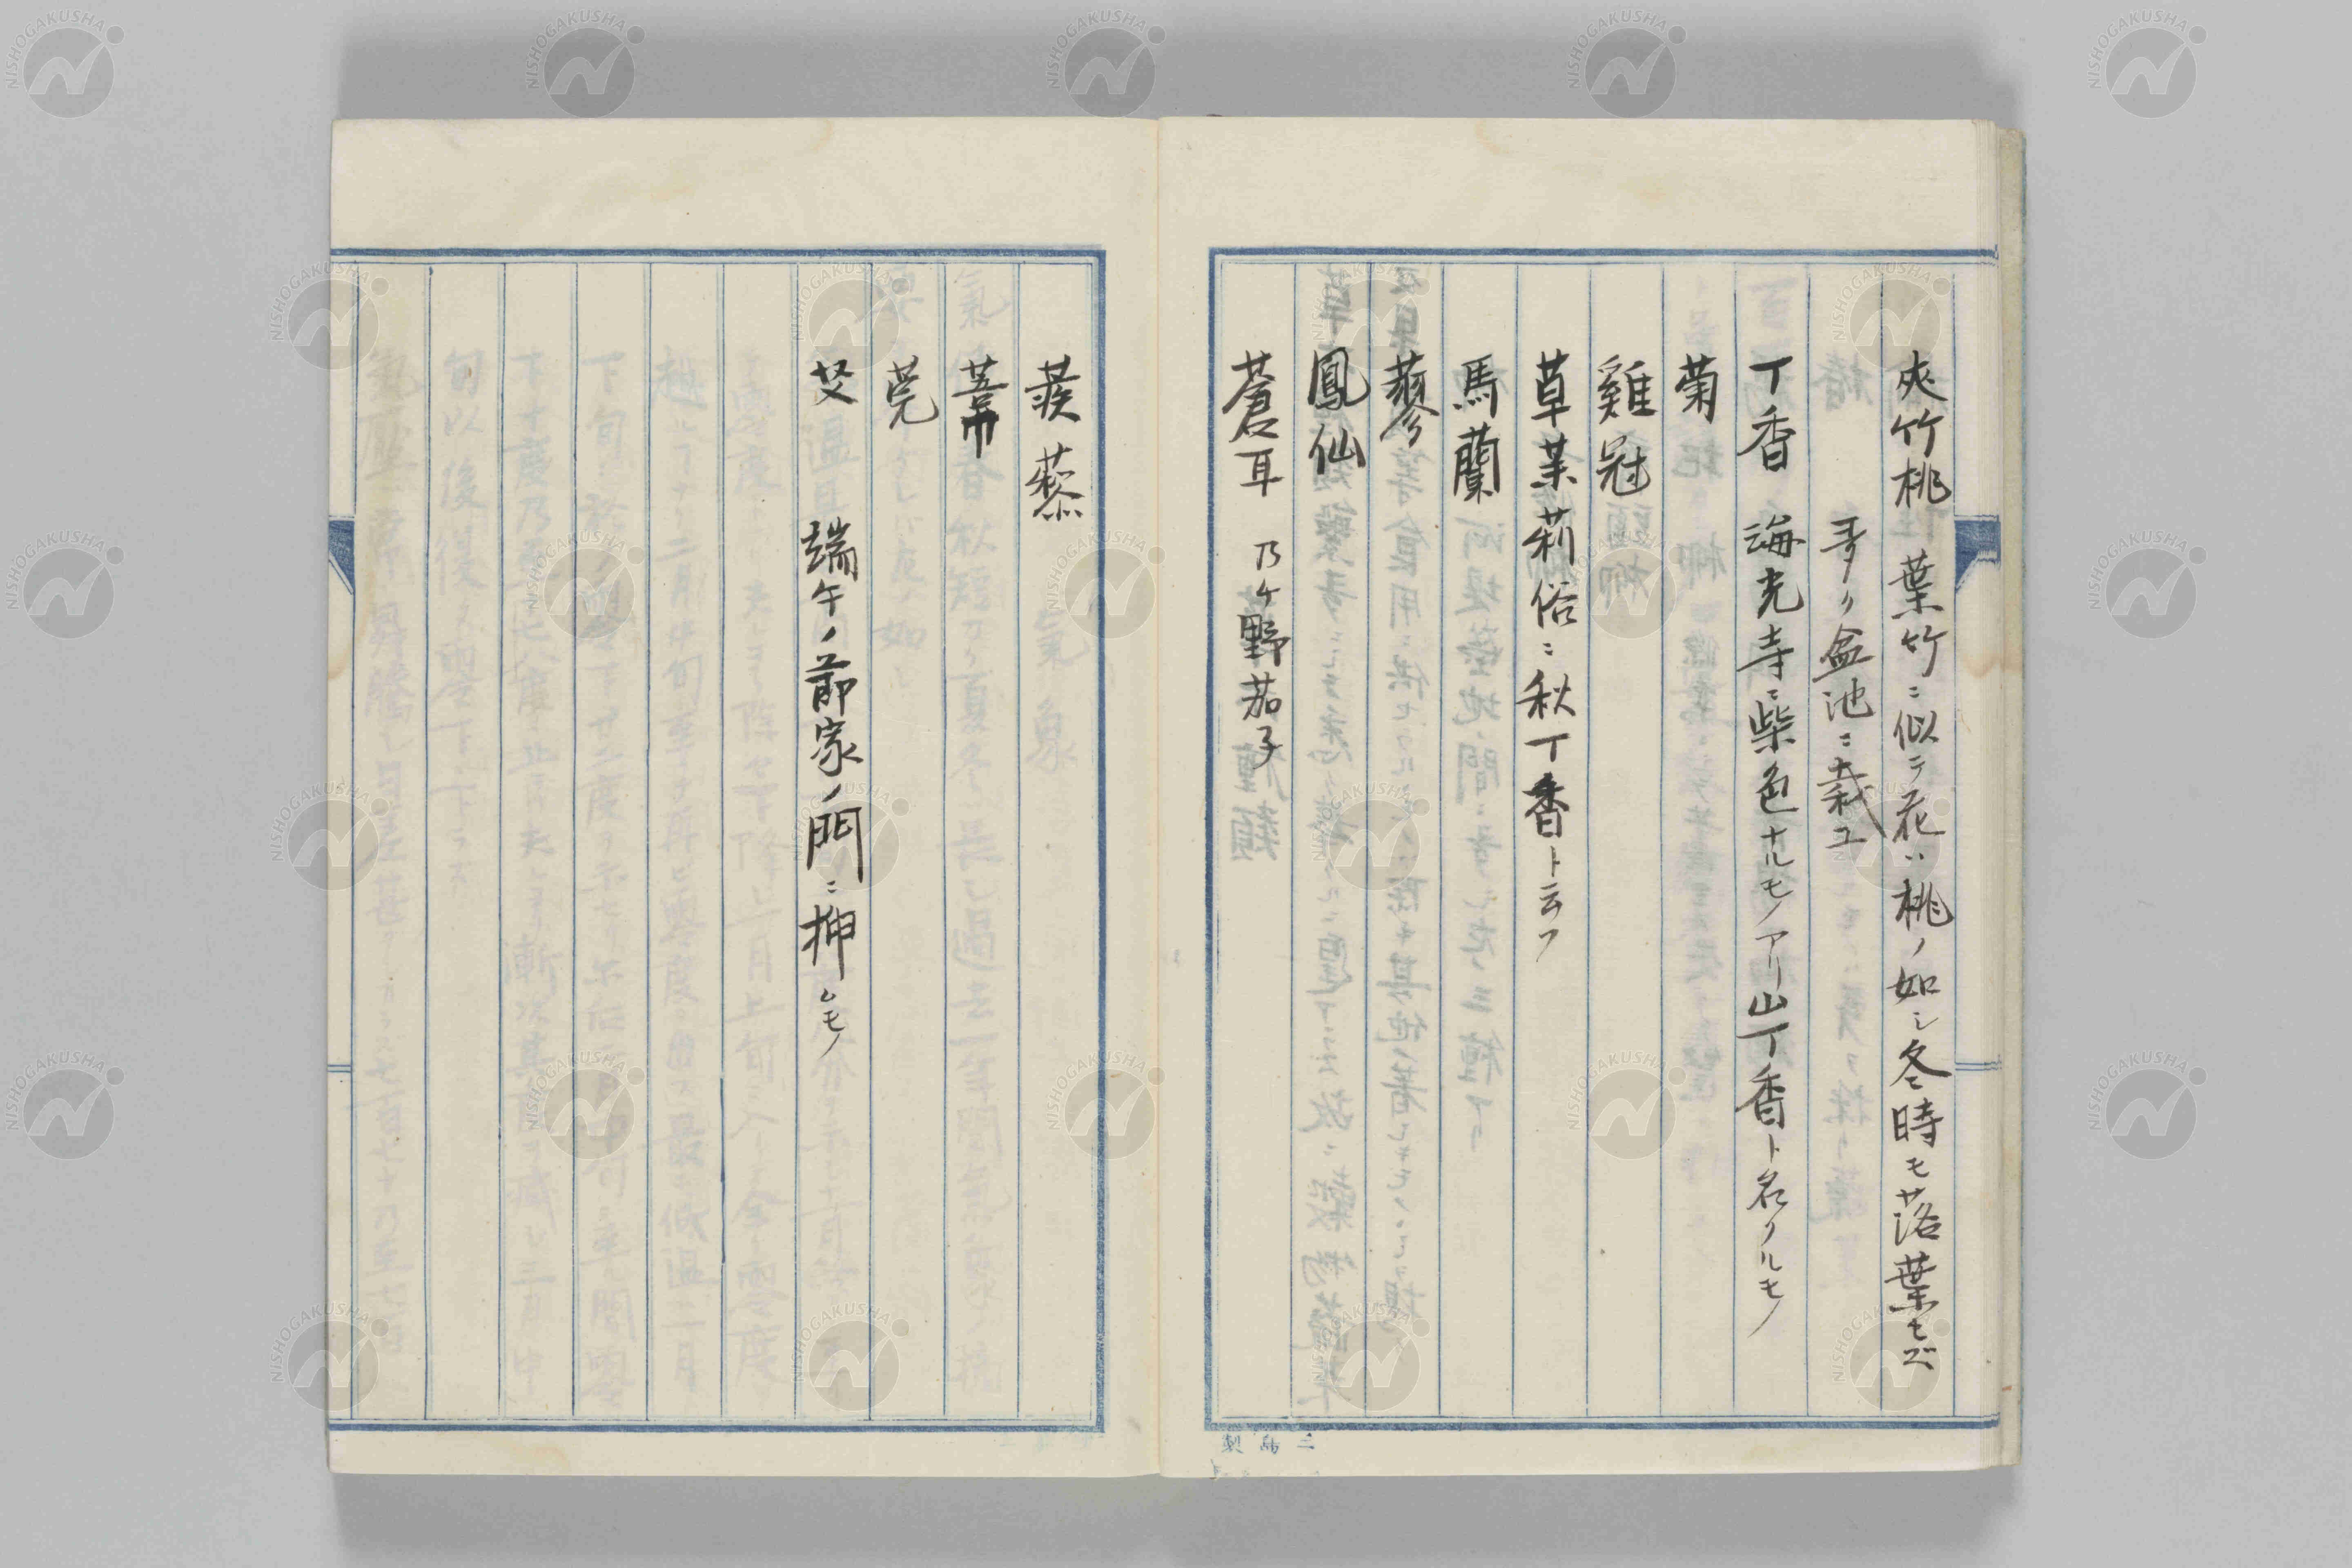 夾竹桃 葉竹ニ似テ花ハ桃ノ如シ冬時モ落葉セズ
多ク盆池ニ栽ユ
丁香 海光寺ニ柴色ナルモノアリ山丁香ト名クルモノ
菊
雞冠
草茉莉俗ニ秋丁香ト云フ
馬蘭
蓼
鳳仙
蒼耳 乃ケ野茄子
蒺藜
莞
艾 端午ノ節家ノ門ニ挿ムモノ
三島製
NISHOGAKUSHA